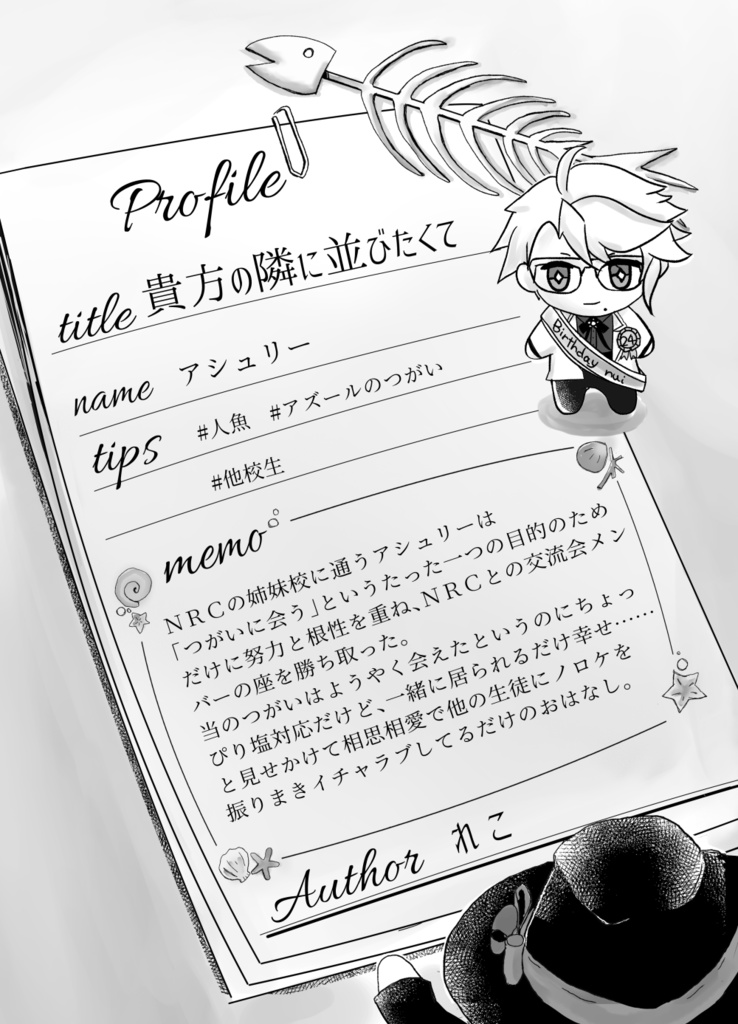 Profile
title 貴方の隣に並びたくて
name アシュリー
tips #人魚 #アズールのつがい
#他校生
memo
NRCの姉妹校に通うアシュリーは
「つがいに会う」というたった一つの目的のため
だけに努力と根性を重ね、NRCとの交流会メン
バーの座を勝ち取った。
当のつがいはようやく会えたというのにちょっ
ぴり塩対応だけど、一緒に居られるだけ幸せ……
と見せかけて相思相愛で他の生徒にノロケを
振りまきイチャラブしてるだけのおはなし。
Author れこ
Birthday nui
24